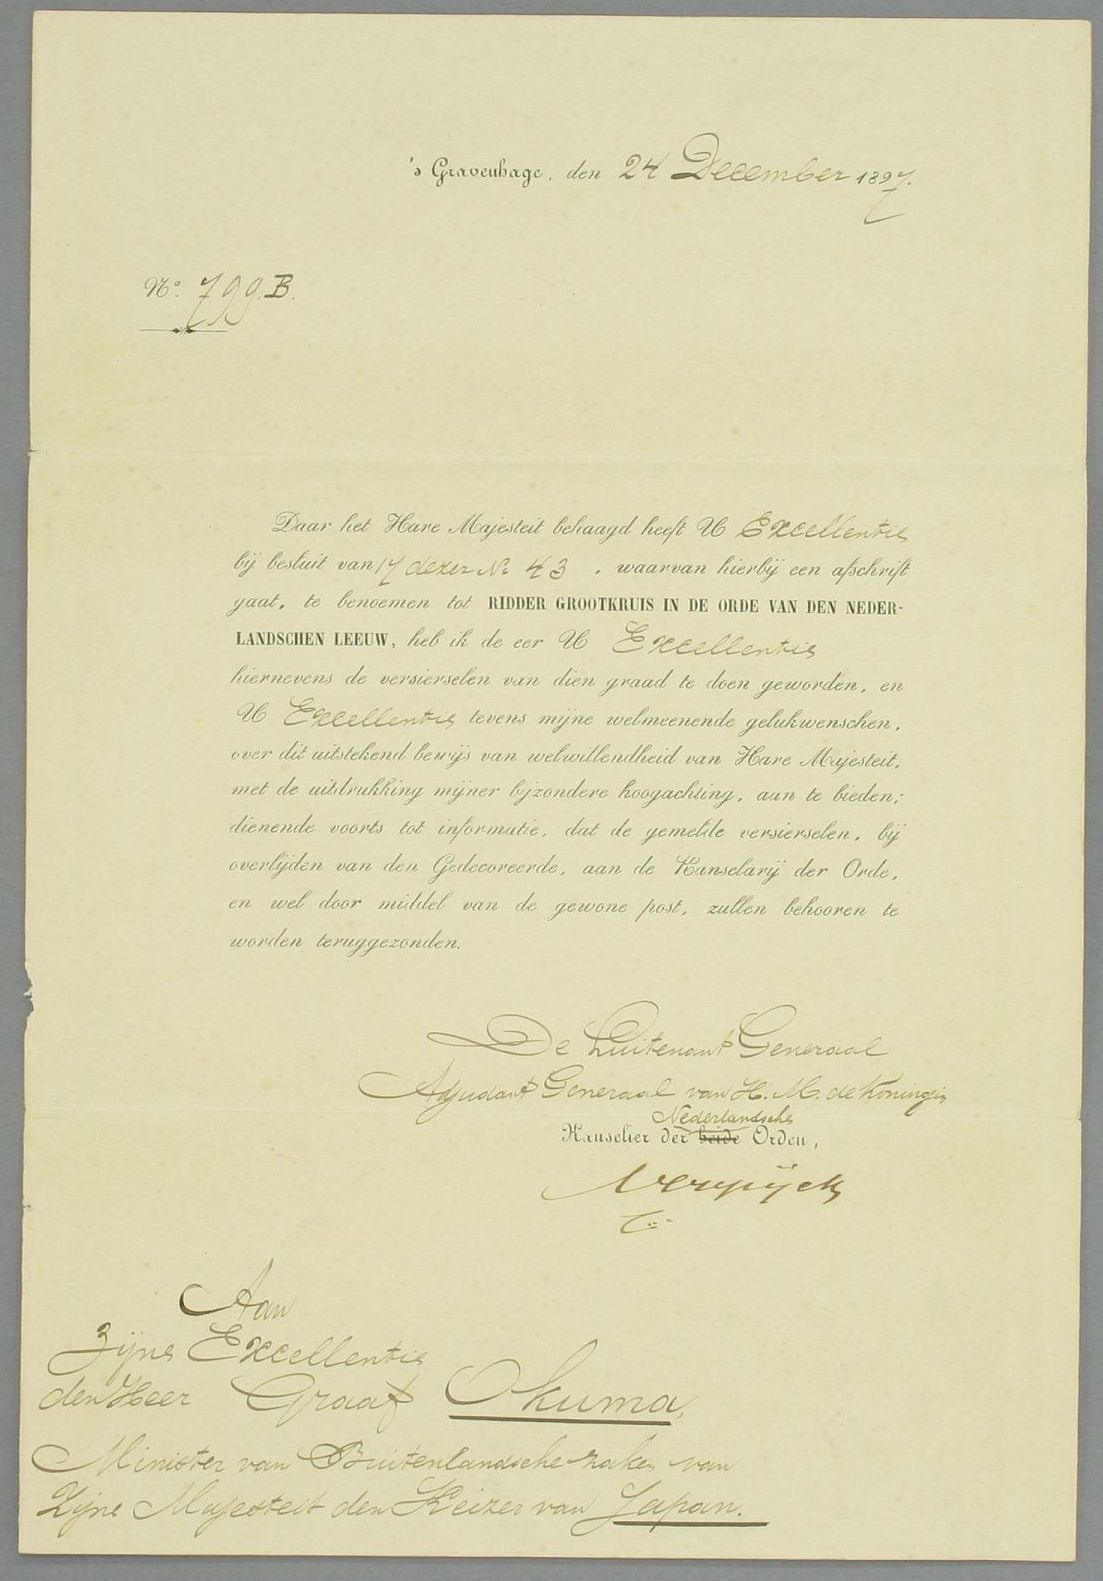 's Gravenhage, den 24 December 1897.
No. 799.B.
Daar het Hare Majesteit behaagd heeft U Excellentie
bij besluit van 17 dezer No 43, waarvan hierbij een afschrift
gaat, te benoemen tot RIDDER GROOTKRUIS IN DE ORDE VAN DEN NEDER-
LANDSCHEN LEEUW, heb ik de eer U Excellentie
hiernevens de versierselen van dien graad te doen geworden, en
U Excellentie tevens mijne welmeenende gelukwenschen,
over dit uitstekend bewijs van welwillendheid van Hare Majesteit,
met de uitdrukking mijner bijzondere hoogachting, aan te bieden;
dienende voorts tot informatie, dat de gemelde versierselen, bij
overlijden van den Gedecoreerde, aan de Kanselarij der Orde,
en wel door middel van de gewone post, zullen behooren te
worden teruggezonden.
De Luitenant Generaal
Adjudant Generaal van H. M. de Koningin
Nederlandsche
Kanselier der beide Orden,
Verspijck
Aan
Zijne Excellentie
den Heer Graaf Okuma,
Minister van Buitenlandsche zaken van
Zijne Majesteit den Keizer van Japan.